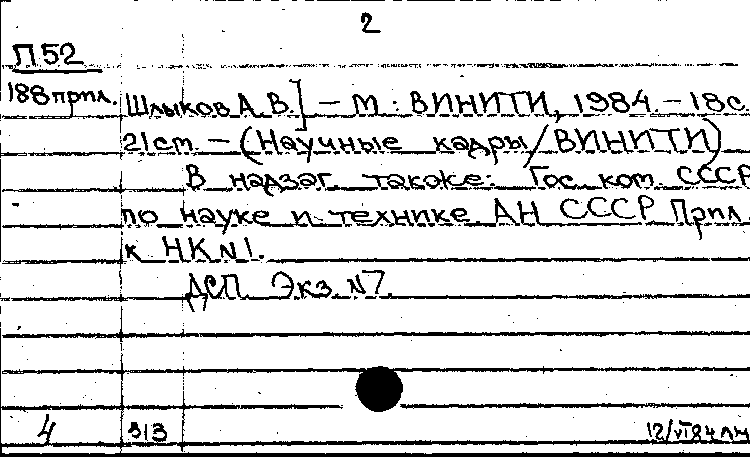 2
П52
188прпл. Шлыков А.В.] – М.: ВИНИТИ, 1984. – 18с.
21см. – (Научные кадры/ВИНИТИ)
В надзаг. также: Гос. ком. СССР
по науке и технике. АН СССР. Прпл.
к НК N1.
ДСП. Экз. N7.
4 313 12/VI84